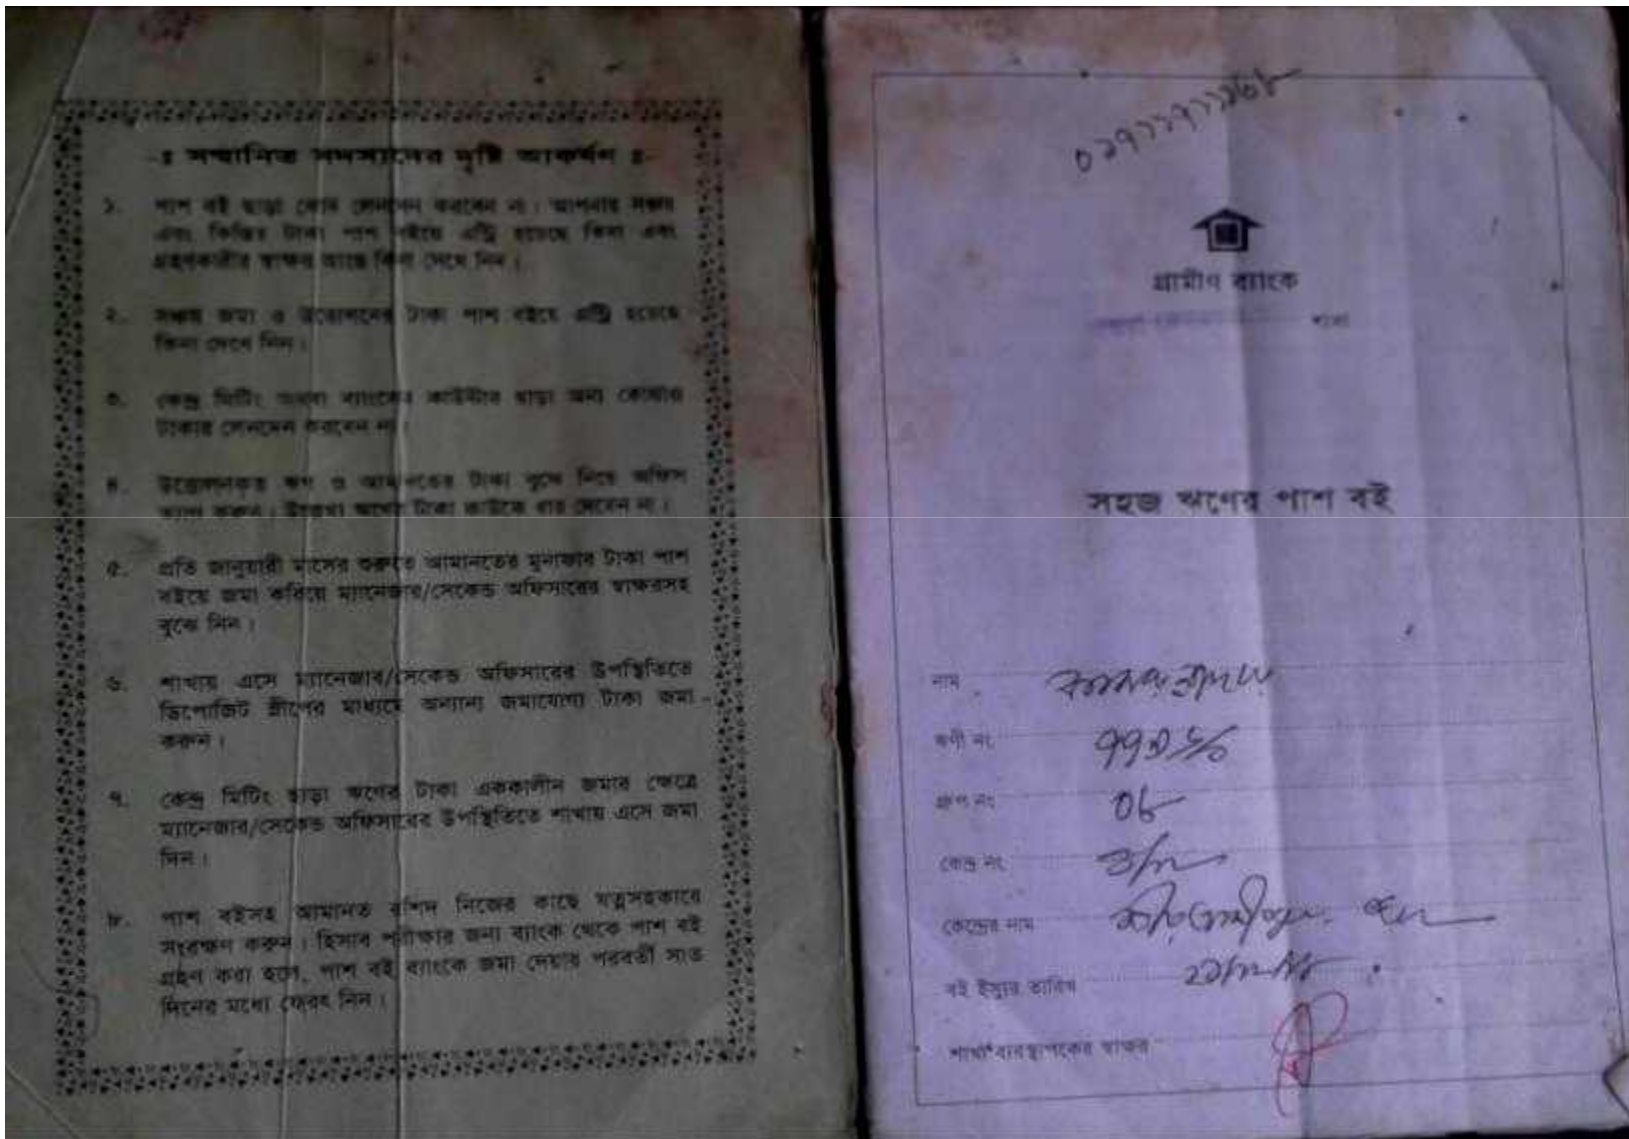 -ঃ সম্মানিত সদস্যদের দৃষ্টি আকর্ষণ ঃ-
১. পাশ বই ছাড়া কোন লেনদেন করবেন না। আপনার সঞ্চয়
এবং কিস্তির টাকা পাশ বইয়ে এন্ট্রি হয়েছে কিনা এবং
গ্রহণকারীর স্বাক্ষর আছে কিনা দেখে নিন।
২. সঞ্চয় জমা ও উত্তোলনের টাকা পাশ বইয়ে এন্ট্রি হয়েছে
কিনা দেখে নিন।
৩. কেন্দ্র মিটিং অথবা ব্যাংকের কাউন্টার ছাড়া অন্য কোথাও
টাকার লেনদেন করবেন না।
৪. উত্তোলনকৃত ঋণ ও আমানতের টাকা বুঝে নিয়ে অফিস
ত্যাগ করুন। টাকা কাউকে ধার দেবেন না।
৫. প্রতি জানুয়ারী মাসের শুরুতে আমানতের মুনাফার টাকা পাশ
বইয়ে জমা করিয়ে ম্যানেজার/সেকেন্ড অফিসারের স্বাক্ষরসহ
বুঝে নিন।
৬. শাখায় এসে ম্যানেজার/সেকেন্ড অফিসারের উপস্থিতিতে
ডিপোজিট স্লীপের মাধ্যমে অন্যান্য জমাযোগ্য টাকা জমা
করুন।
৭. কেন্দ্র মিটিং ছাড়া ঋণের টাকা এককালীন জমার ক্ষেত্রে
ম্যানেজার/সেকেন্ড অফিসারের উপস্থিতিতে শাখায় এসে জমা
দিন।
৮. পাশ বইসহ আমানত রশিদ নিজের কাছে যত্নসহকারে
সংরক্ষণ করুন। হিসাব পরীক্ষার জন্য ব্যাংক থেকে পাশ বই
গ্রহণ করা হলে, পাশ বই ব্যাংকে জমা দেয়ার পরবর্তী সাত
দিনের মধ্যে ফেরৎ নিন।
গ্রামীণ ব্যাংক
শাখা
সহজ ঋণের পাশ বই
নাম
ঋণী নং
গ্রুপ নং ০৮
কেন্দ্র নং
কেন্দ্রের নাম
বই ইস্যুর তারিখ
শাখা ব্যবস্থাপকের স্বাক্ষর